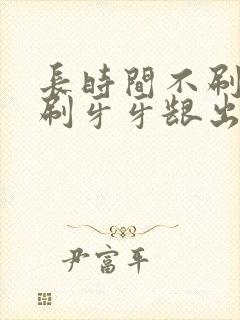 長時間不刷
刷牙牙齦出
尹富平